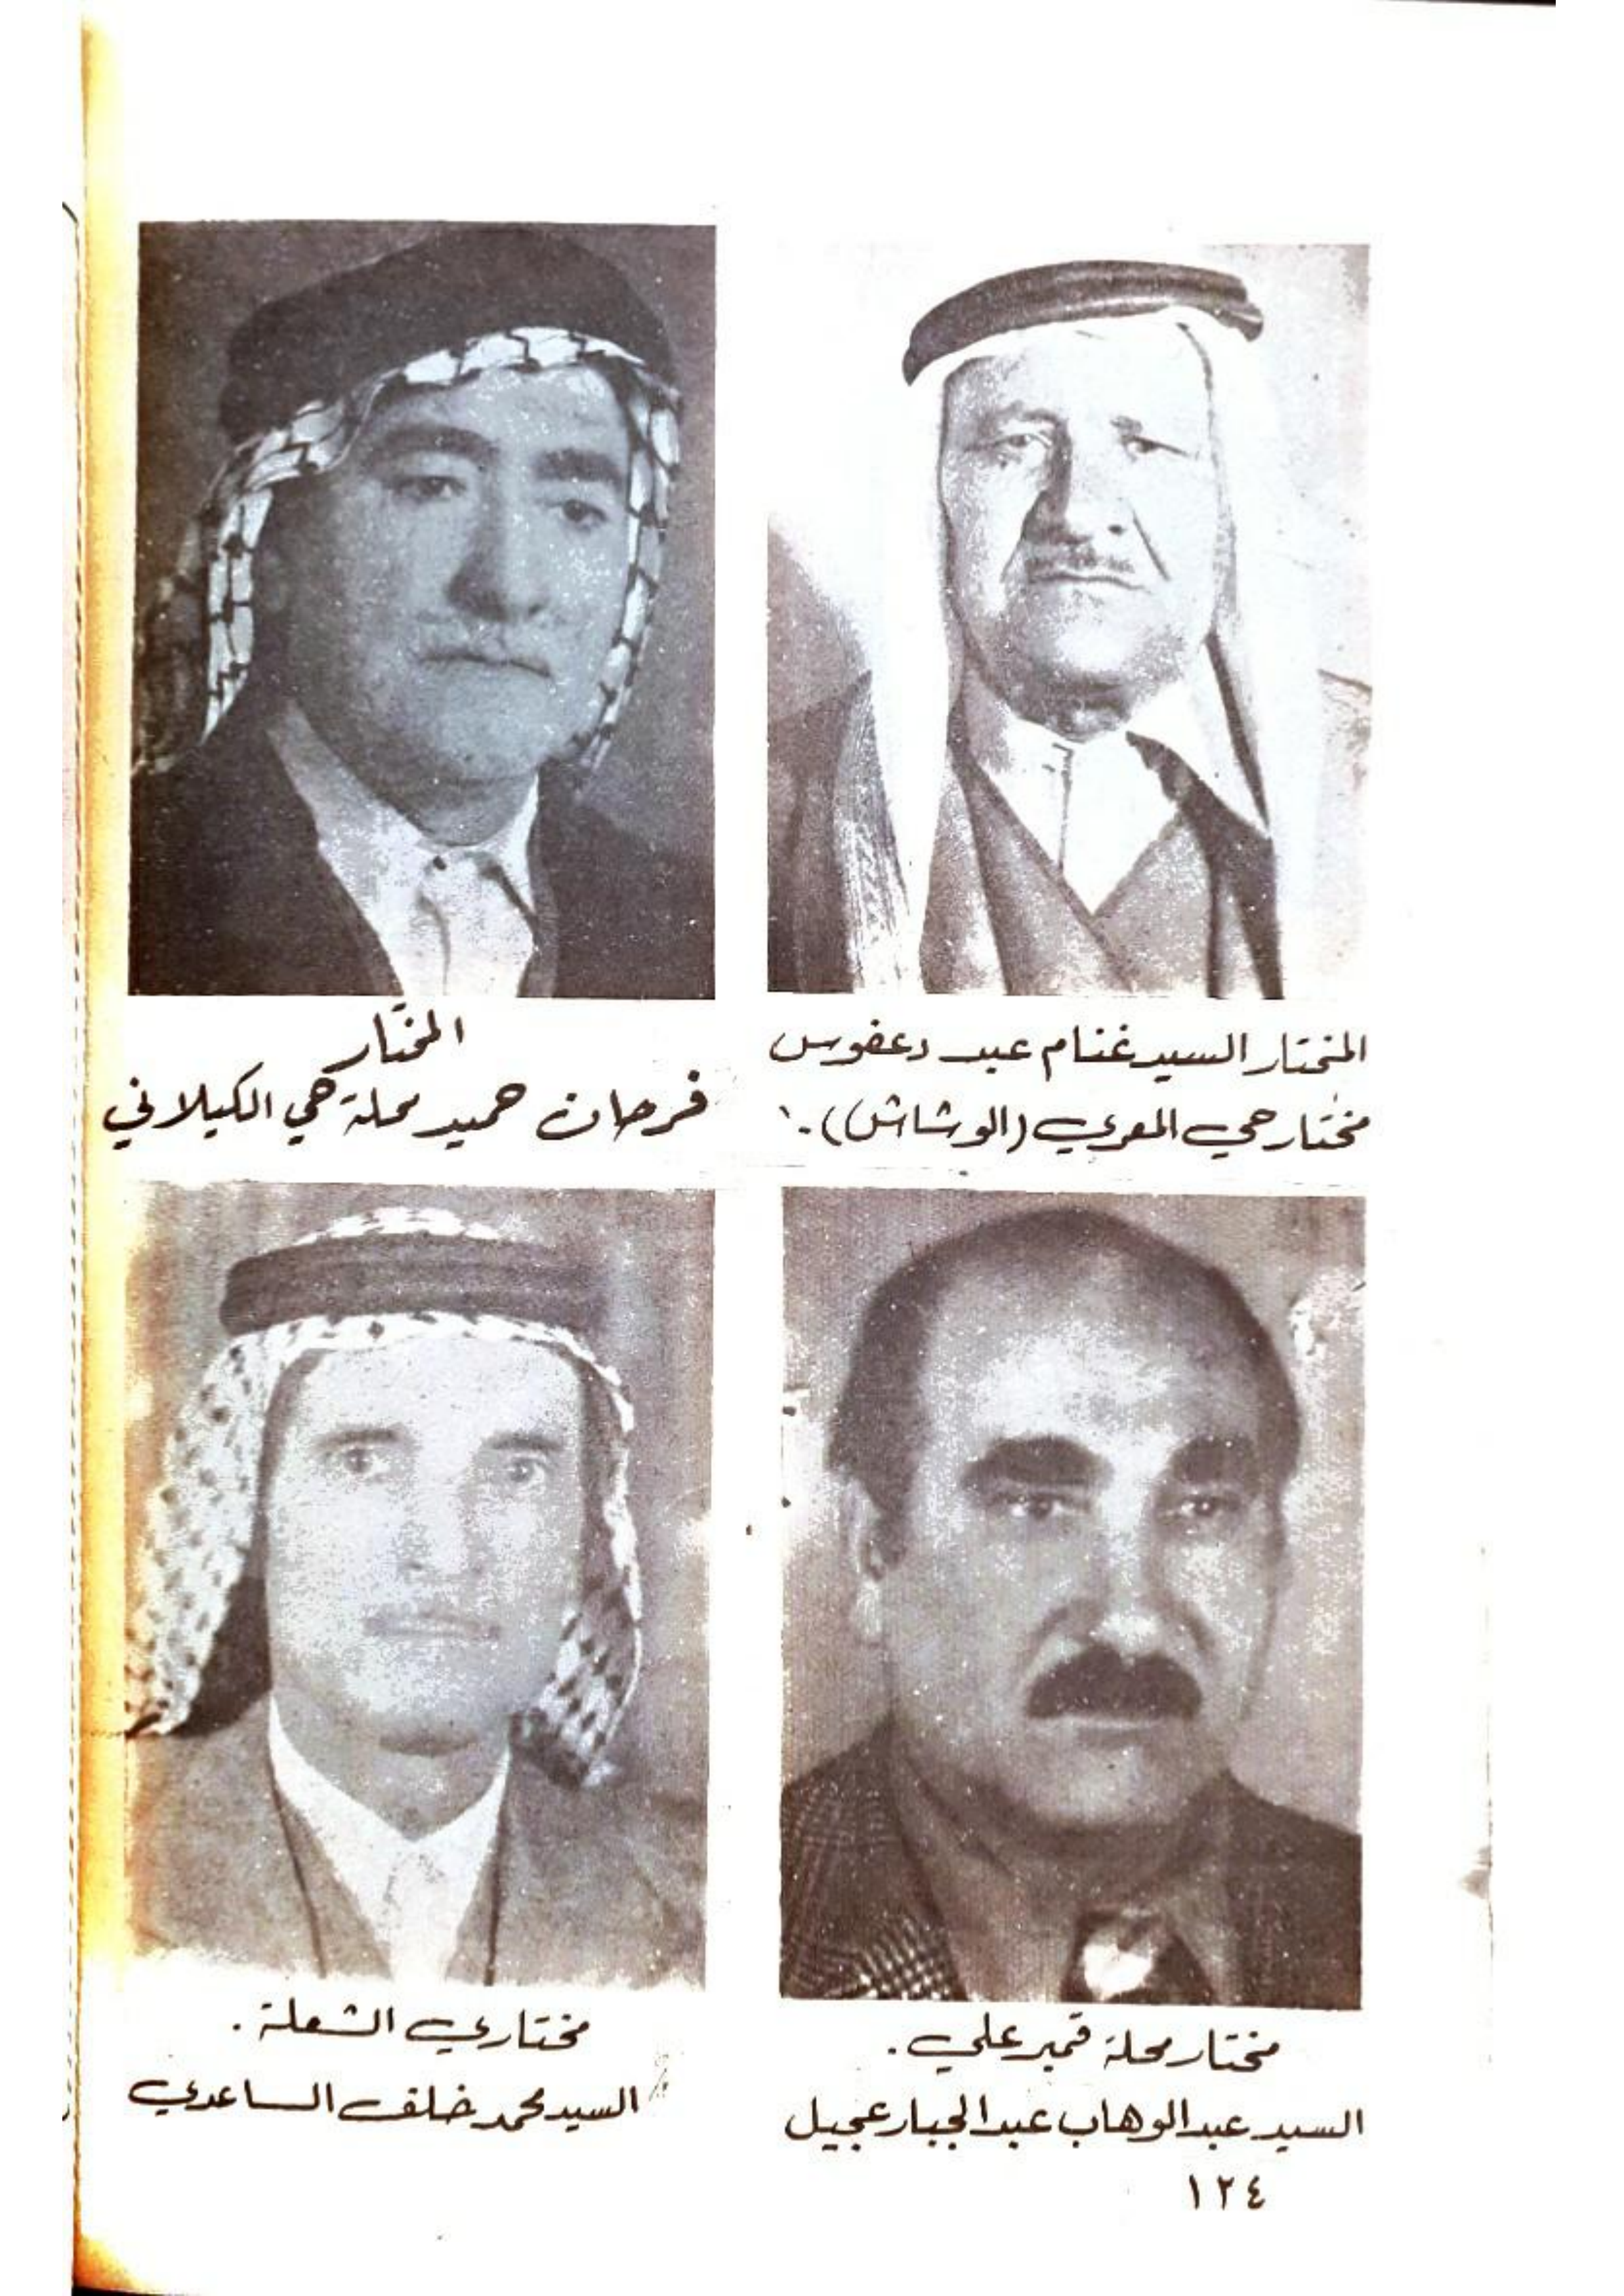 المختار السيد غنام عبد دعفوس
مختار حي المعري (الوشاش).
المختار
فرحان حميد محلة حي الكيلاني
مختار محلة قمبر علي.
السيد عبد الوهاب عبد الجبار عجيل
مختاري الشعلة.
السيد محمد خلف الساعدي
١٢٤